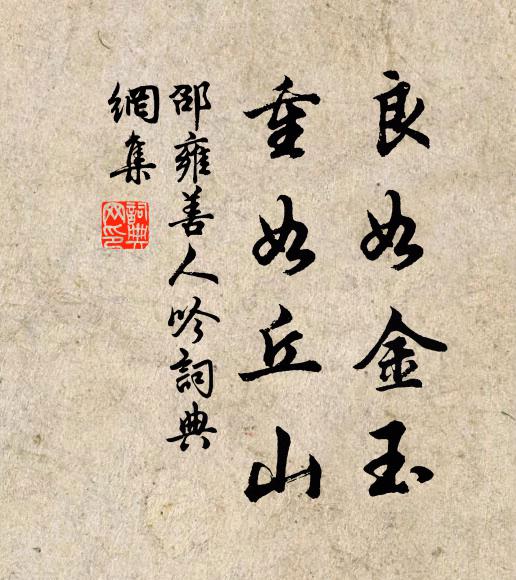 良如金玉
重如丘山
邵雍善人吟詞典
網集
詞典网印